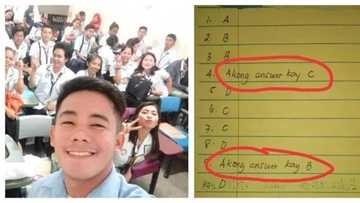 1. A
2. B
3. A
4. Akong answer kay C
5 D
6. C
7. C
8. D
Akong answer kay B
10. D